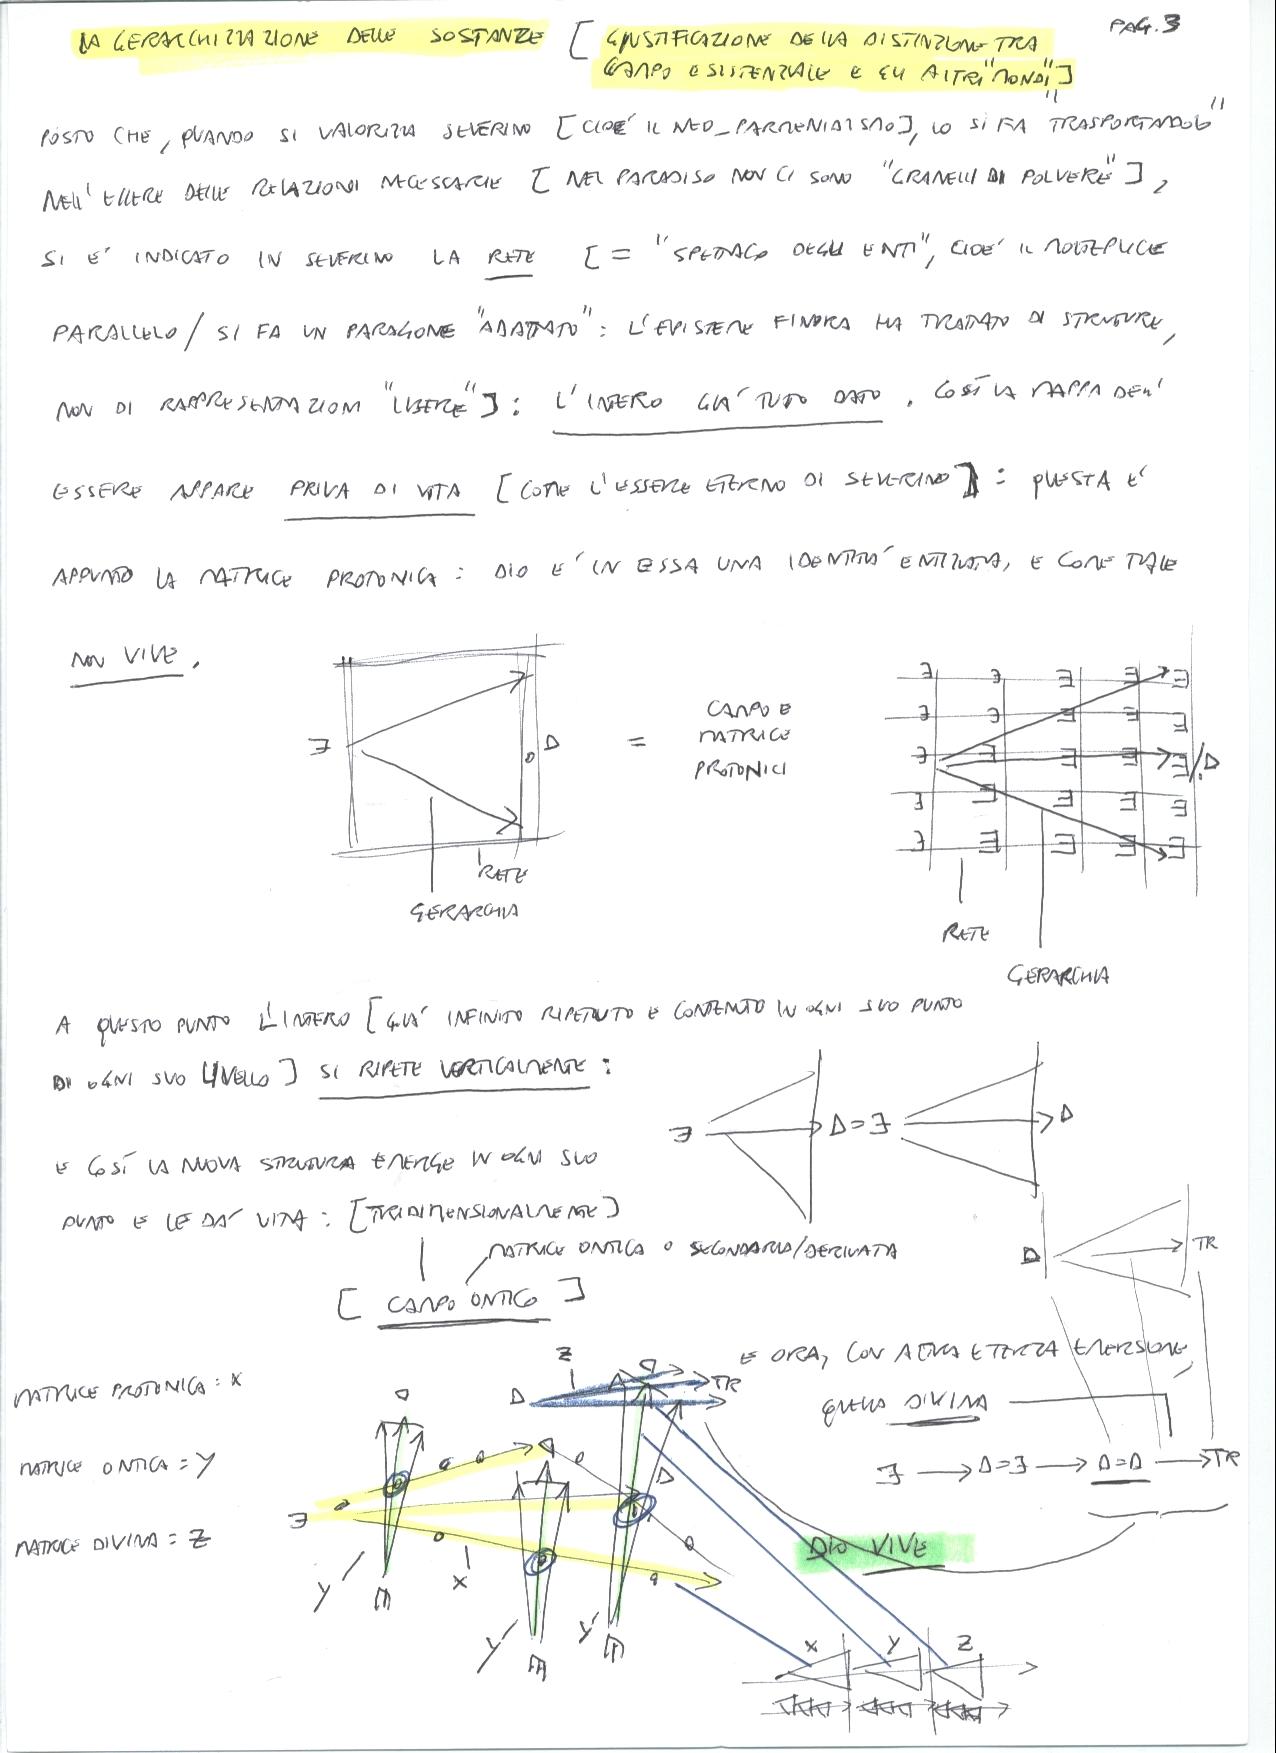 PAG.3
LA GERARCHIZZAZIONE DELLE SOSTANZE [ GIUSTIFICAZIONE DELLA DISTINZIONE TRA
CAMPO ESISTENZIALE E GLI ALTRI "MONDI" ]
POSTO CHE, QUANDO SI VALORIZZA SEVERINO [CIOE' IL NEO_PARMENIDISMO], LO SI FA "TRASPORTANDOLO"
NELL'ESSERE DELLE RELAZIONI NECESSARIE [ NEL PARADISO NON CI SONO "GRANELLI DI POLVERE" ],
SI E' INDICATO IN SEVERINO LA RETE [ = "SPETTACOLO DEGLI ENTI", CIOE' IL MOLTEPLICE
PARALLELO / SI FA UN PARAGONE "ADATTATO" : L'EPISTEME FINORA HA TRATTATO DI STRUTTURE,
NON DI RAPPRESENTAZIONI "LIBERE" ] : L'INTERO GIA' TUTTO DATO. COSÌ LA MAPPA DELL'
ESSERE APPARE PRIVA DI VITA [ COME L'ESSERE ETERNO DI SEVERINO ] : QUESTA E'
APPUNTO LA MATRICE PROTONICA : DIO E' IN ESSA UNA IDENTITA' ENTIZZATA, E COME TALE
NON VIVE.
∃ D = CAMPO E
MATRICE
PROTONICI
RETE
GERARCHIA
∃ ∃ ∃ ∃ ∃
∃ ∃ ∃ ∃ ∃
∃ ∃ ∃ ∃ ∃/D
∃ ∃ ∃ ∃ ∃
∃ ∃ ∃ ∃ ∃
RETE
GERARCHIA
A QUESTO PUNTO L'INTERO [ GIA' INFINITO RIPETUTO E CONTENUTO IN OGNI SUO PUNTO
DI OGNI SUO LIVELLO ] SI RIPETE VERTICALMENTE :
∃ D=∃ D
E COSÌ LA NUOVA STRUTTURA EMERGE IN OGNI SUO
PUNTO E LE DA' VITA : [TRIDIMENSIONALMENTE]
MATRICE ONTICA O SECONDARIA/DERIVATA
D TR
[ CAMPO ONTICO ]
E ORA, CON ALTRA E TERZA EMERSIONE,
QUELLA DIVINA
∃ → D=∃ → D=D → TR
MATRICE PROTONICA : X
MATRICE ONTICA = Y
MATRICE DIVINA = Z
Z
D TR
∃
D
Y X Y Y
DIO VIVE
X Y Z